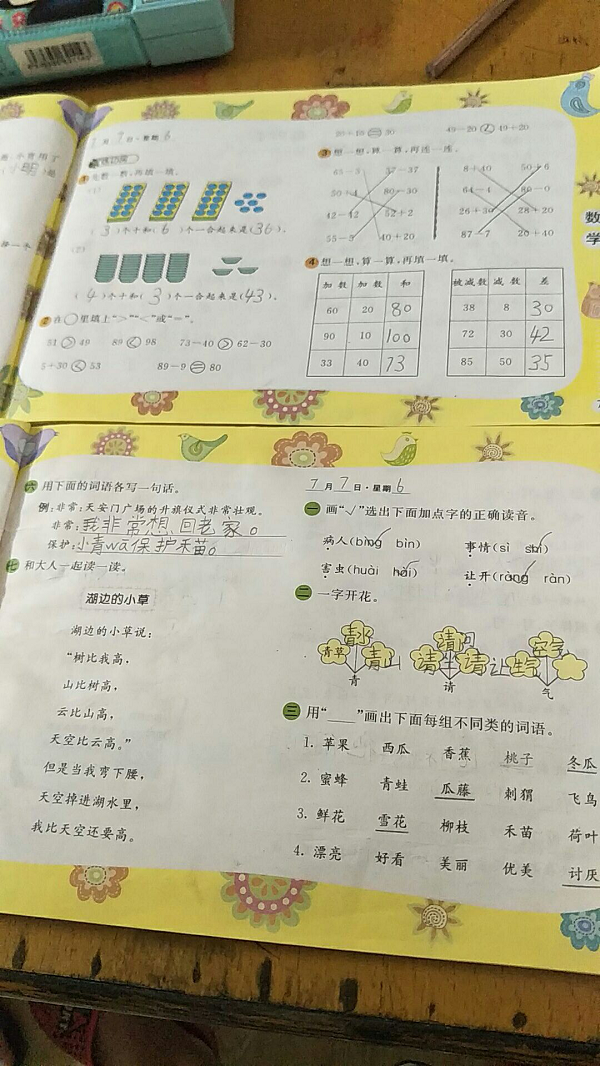 7月7日·星期6
1 先数一数,再填一填。
(1)
(3)个十和(6)个一合起来是(36)。
(2)
(4)个十和(3)个一合起来是(43)。
2 在○里填上“>”“<”或“=”。
51 > 49 89 < 98 73-40 > 62-30
5+30 < 53 89-9 = 80
49-20 < 49+20
3 想一想,算一算,再连一连。
65-3 37-37 8+40 50+6
50+4 80-30 64-4 86-0
42-42 52+2 26+30 28+20
55-5 40+20 87-7 20+40
4 想一想,算一算,再填一填。
加数 加数 和
60 20 80
90 10 100
33 40 73
被减数 减数 差
38 8 30
72 30 42
85 50 35
数
学
六 用下面的词语各写一句话。
例:非常:天安门广场的升旗仪式非常壮观。
非常:我非常想回老家。
保护:小青wā保护禾苗。
七 和大人一起读一读。
湖边的小草
湖边的小草说:
“树比我高,
山比树高,
云比山高,
天空比云高。”
但是当我弯下腰,
天空掉进湖水里,
我比天空还要高。
7月7日·星期6
一 画“✓”选出下面加点字的正确读音。
病人(bìng bìn) 事情(sì shì)
害虫(huài hài) 让开(ràng ràn)
二 一字开花。
青草 青水 青山
青
请问 请牛 请让
请
生气 空气
气
三 用“___”画出下面每组不同类的词语。
1. 苹果 西瓜 香蕉 桃子 冬瓜
2. 蜜蜂 青蛙 瓜藤 刺猬 飞鸟
3. 鲜花 雪花 柳枝 禾苗 荷叶
4. 漂亮 好看 美丽 优美 讨厌